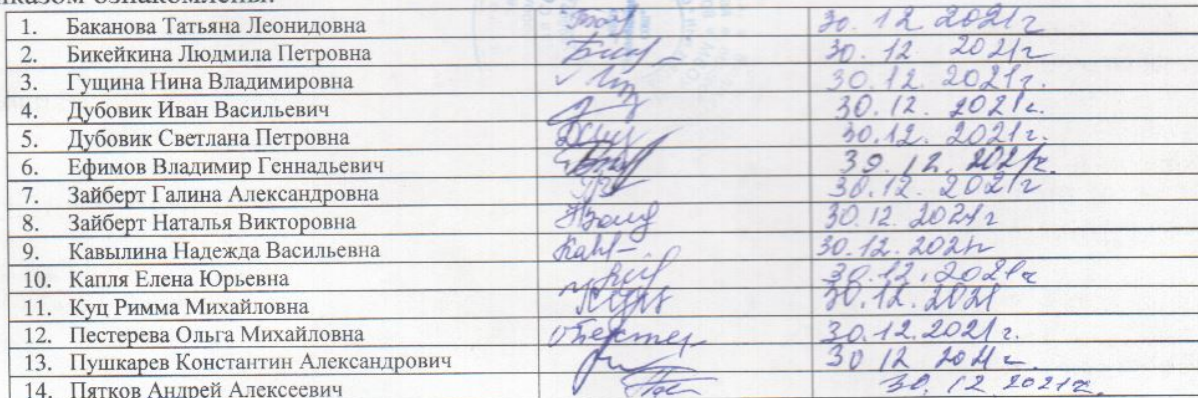 ознакомлены:
1. Баканова Татьяна Леонидовна 30.12 2021г
2. Бикейкина Людмила Петровна 30.12. 2021г
3. Гущина Нина Владимировна 30.12.2021г.
4. Дубовик Иван Васильевич 30.12. 2021г.
5. Дубовик Светлана Петровна 30.12. 2021г.
6. Ефимов Владимир Геннадьевич 30.12. 2021г.
7. Зайберт Галина Александровна 30.12. 2021г
8. Зайберт Наталья Викторовна 30.12 2021г
9. Кавылина Надежда Васильевна 30.12.2021г
10. Капля Елена Юрьевна 30.12.2021г
11. Куц Римма Михайловна 30.12.2021
12. Пестерева Ольга Михайловна 30.12.2021г.
13. Пушкарев Константин Александрович 30 12 2021г
14. Пятков Андрей Алексеевич 30.12 2021г.